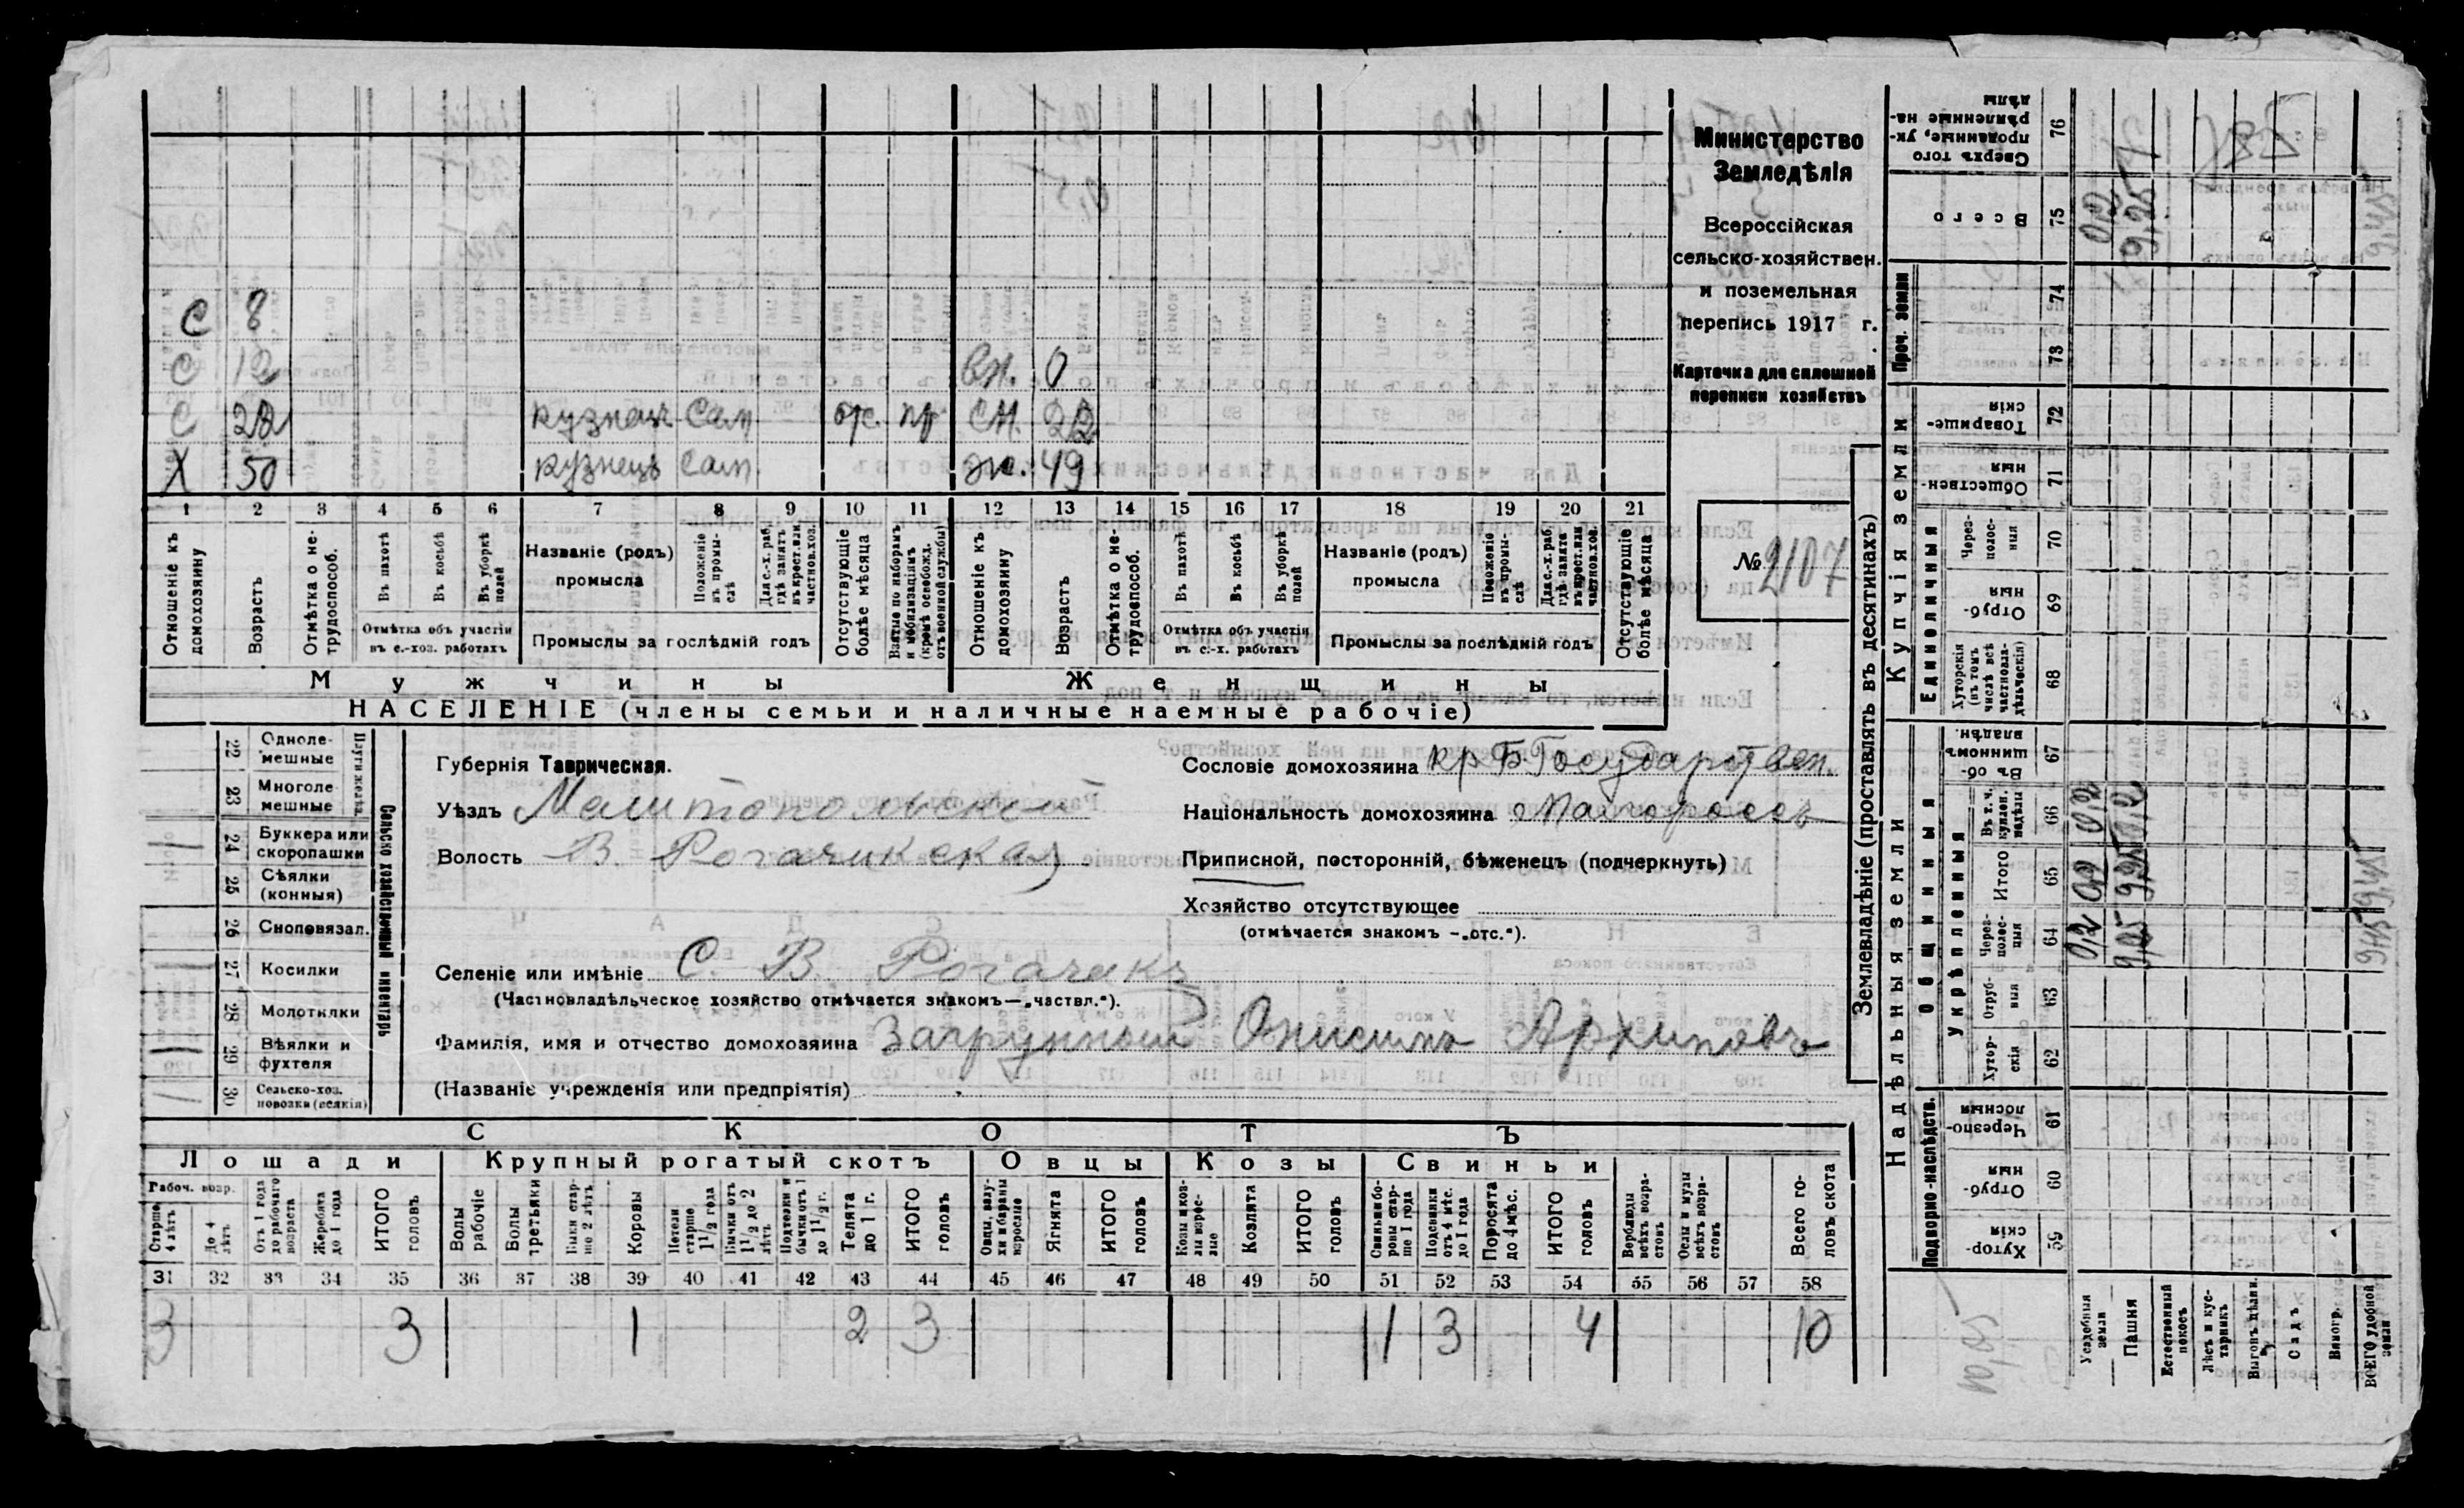 Министерство
Земледѣлія
Всероссійская
сельско-хозяйствен.
и поземельная
перепись 1917 г.
Карточка для сплошной
переписи хозяйствъ
№ 2107
С 8
С 12 вн. 0
С 28 Сам от. пр сн. 22
Х 50 кузнецъ Сам. ж. 49
1 2 3 4 5 6 7 8 9 10 11 12 13 14 15 16 17 18 19 20 21
Отношеніе къ домохозяину
Возрастъ
Отмѣтка о не-трудоспособ.
Въ пахотѣ
Въ косьбѣ
Въ уборкѣ полей
Отмѣтка объ участіи въ с.-хоз. работахъ
Названіе (родъ) промысла
Положеніе въ промы-слѣ
Для с.-х. раб. гдѣ занятъ въ крест. или частнов. хоз.
Промыслы за послѣдній годъ
Отсутствующіе болѣе мѣсяца
Взятые по наборамъ и мобилизаціямъ (кромѣ освобожд. отъ военной службы)
Отношеніе къ домохозяину
Возрастъ
Отмѣтка о не-трудоспособ.
Въ пахотѣ
Въ косьбѣ
Въ уборкѣ полей
Отмѣтка объ участіи въ с.-х. работахъ
Названіе (родъ) промысла
Положеніе въ промы-слѣ
Для с.-х. раб. гдѣ занята въ крест. или частнов. хоз.
Промыслы за послѣдній годъ
Отсутствующіе болѣе мѣсяца
Мужчины Женщины
НАСЕЛЕНІЕ (члены семьи и наличные наемные рабочіе)
Сельско хозяйственный инвентарь
22 Одноле-мешные
23 Многоле мешные
24 Буккера или скоропашки 1
25 Сѣялки (конныя)
26 Сноповязал.
27 Косилки 1
28 Молотилки
29 Вѣялки и фухтеля 1
30 Сельско-хоз. повозки (всякія) 1
Губернія Таврическая.
Уѣздъ Мелитопольскій
Волость В. Рогачикская
Селеніе или имѣніе С. В. Рогачикъ
(Частновладѣльческое хозяйство отмѣчается знакомъ—„частвл.“).
Фамилія, имя и отчество домохозяина Загрунный Онисимъ Архиповъ
(Названіе учрежденія или предпріятія)
Сословіе домохозяина кр Б Государствен.
Національность домохозяина Малороссъ
Приписной, посторонній, бѣженецъ (подчеркнуть)
Хозяйство отсутствующее
(отмѣчается знакомъ —„отс.“).
СКОТЪ
Лошади Крупный рогатый скотъ Овцы Козы Свиньи
Рабоч. возр.
Старше 4 лѣтъ
До 4 лѣтъ
Отъ 1 года до рабочаго возраста
Жеребята до 1 года
ИТОГО головъ
Волы рабочіе
Волы третьяки
Быки стар-ше 2 лѣтъ
Коровы
Нетели старше 1 1/2 года
Бычки отъ 1 1/2 до 2 лѣтъ
Подтелки и бычки отъ 1 до 1 1/2 г.
Телята до 1 г.
ИТОГО головъ
Овцы, валу-хи и бараны взрослые
Ягнята
ИТОГО головъ
Козы и коз-лы взрос-лые
Козлята
ИТОГО головъ
Свиньи бо-ровы стар-ше 1 года
Подсвинки отъ 4 мѣс. до 1 года
Поросята до 4 мѣс.
ИТОГО головъ
Верблюды всѣхъ возра-стовъ
Ослы и мулы всѣхъ возра-стовъ
Всего го-ловъ скота
31 32 33 34 35 36 37 38 39 40 41 42 43 44 45 46 47 48 49 50 51 52 53 54 55 56 57 58
3 3 1 2 3 1 3 4 10
Землевладѣніе (проставлять въ десятинахъ)
Надѣльныя земли Купчія земли Проч. земли
Подворно-наслѣдств.
Общинныя
Укрѣпленныя
Единоличныя
Хутор-скія 59
Отруб-ныя 60
Черезпо-лосныя 61
Хутор-скія 62
Отруб-ныя 63
Черезполос-ныя 64
Итого 65
Въ т. ч. куплен. надѣлы 66
Въ об-щинномъ владѣн. 67
Хуторскія (въ томъ числѣ всѣ частновла-дѣльческія) 68
Отруб-ныя 69
Через-полос-ныя 70
Обществен-ныя 71
Товарище-скія 72
73
74
Всего 75
Сверхъ того проданные, ук-рѣпленные на-дѣлы 76
Усадебная земля 0,2 0,2 0,2 0,2
Пашня 9,25
Естественный покосъ
Лѣсъ и кус-тарникъ
Выгонъ цѣлин.
Садъ
Виногр.
ВСЕГО удобной земли 9,45 9,45
10,05